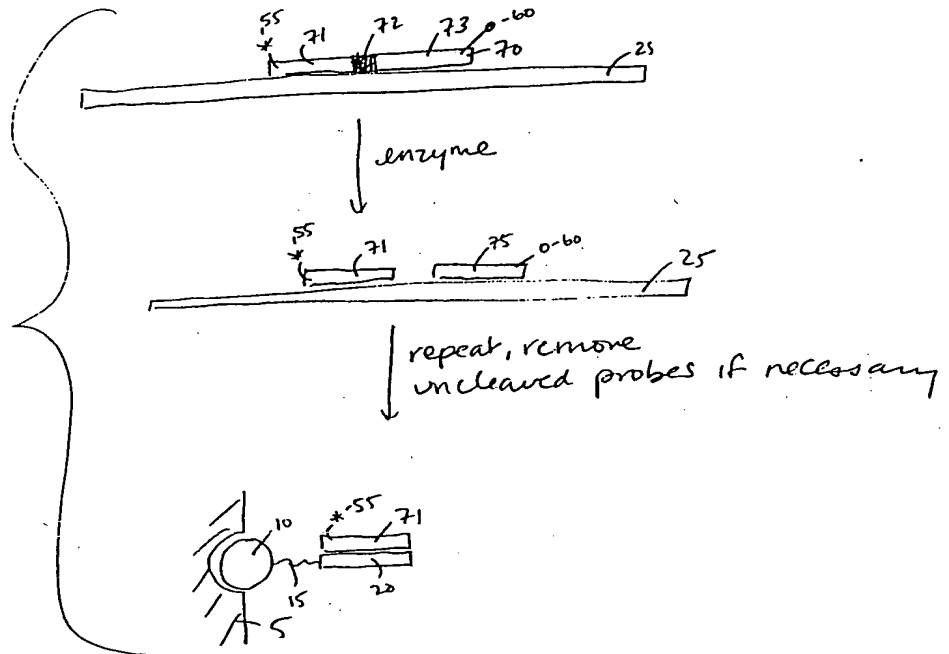 *-55 71 72 73 o-60 70 25
enzyme
*-55 71 75 o-60 25
repeat, remove
uncleaved probes if necessary
10 *-55 71
15 20
5